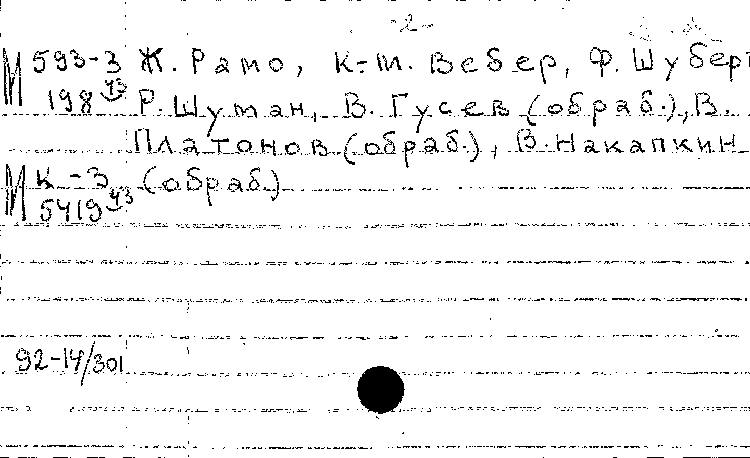 -2-
М 593-3 Ж. Рамо, К-М. Вебер, Ф. Шуберт
198 уз Р. Шуман, В. Гусев (обраб.), В.
Платонов (обраб.), В. Накапкин
М К-3 (обраб.)
5419 уз
92-14/301